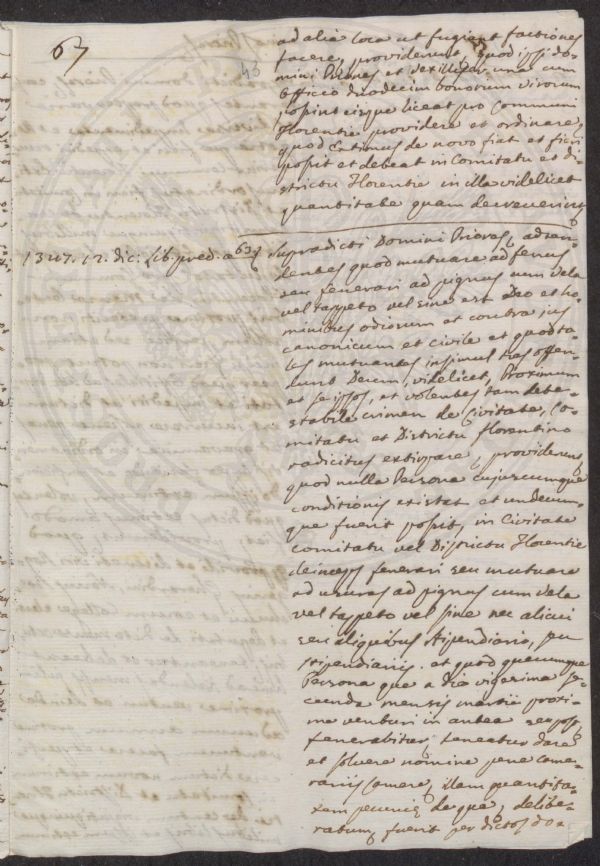 67
43
ad alia loca ut fugiant factiones
facere, providerunt quod ipsi do-
mini Priores et Vexillifer una cum
Officio duodecim bonorum virorum
possint eisque liceat pro Communi
Florentie providere et ordinare,
quod Extimus de novo fiat et fieri
possit et debeat in Comitatu et di-
strictu Florentie in illa videlicet
quantitate quam decreverint
1347. 12. dic: Lib. pred. a 63
Supradicti Domini Priores, adten-
dentes quod mutuare ad fenus
seu fenerari ad pignus cum vela
vel tappeto vel sine est Deo et ho-
minibus odiosum et contra jus
canonicum et civile et quod ta-
les mutuantes insimul tres offen-
dunt Deum, videlicet, Proximum
et se ipsos, et volentes tam dete-
stabile crimen de Civitate, Co-
mitatu et Districtu florentino
radicitus extirpare, providerunt
quod nulla Persona cujuscumque
conditionis existat et undecum-
que fuerit possit, in Civitate
Comitatu vel Districtu Florentie
deinceps fenerari seu mutuare
ad usuras ad pignus cum vela
vel tappeto vel sine nec alicui
seu aliquibus stipendiario, seu
stipendiariis. et quod quecumque
Persona que a Dia vigesima se-
cunda mensis martii proxi-
me venturi in antea
fenerabitur teneatur dare
et solvere nomine pene came-
rariis Camere, illam quantita-
tem pecunie de qua, delibe-
ratum fuerit per dictos do-